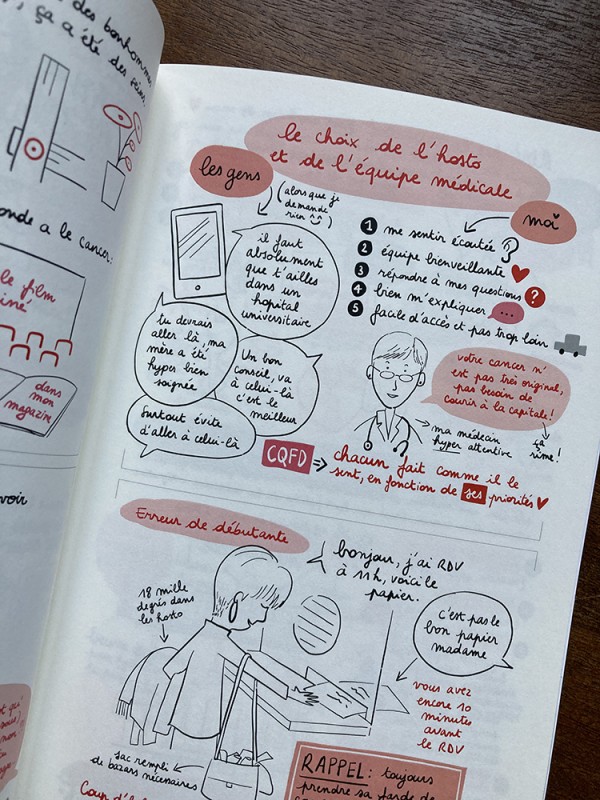 des bonhommes
, ça a été des
onde a le cancer:
le film
iné
dans
mon
magazine
voir
le choix de l'hosto
et de l'équipe médicale
les gens
(alors que je
demande
rien)
moi
il faut
absolument
que t'ailles
dans un
hopital
universitaire
tu devrais
aller là, ma
mère a été
hyper bien
soignée
Un bon
conseil, va
à celui-là
c'est le
meilleur
Surtout évite
d'aller à celui-là
1 me sentir écoutée
2 équipe bienveillante
3 répondre à mes questions ?
4 bien m'expliquer ...
5 facile d'accès et pas trop loin
votre cancer n'
est pas très original,
pas besoin de
courir à la capitale!
ma médecin
hyper attentive
ça
rime!
CQFD => chacun fait comme il le
sent, en fonction de ses priorités
Erreur de débutante
18 mille
degrés dans
les hosto
bonjour, j'ai RDV
à 11h, voici le
papier.
c'est pas le
bon papier
madame
vous avez
encore 10
minutes
avant
le RDV
sac rempli
de bazars nécessaires
RAPPEL: toujours
prendre sa farde de